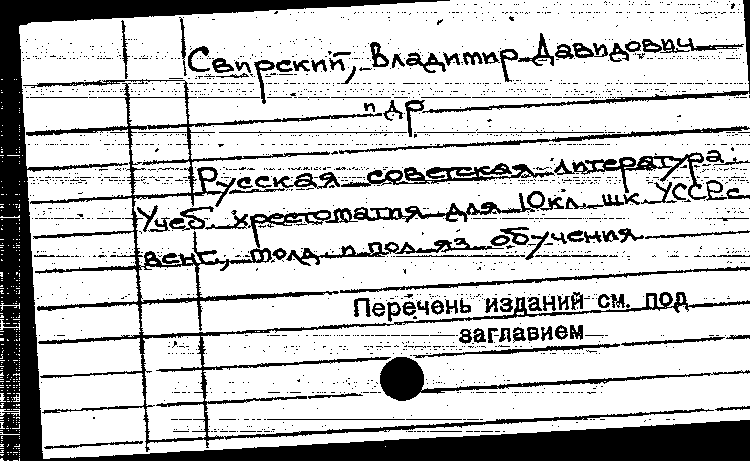 Свирский, Владимир Давидович
и др
Русская советская литература:
Учеб. хрестоматия для 10кл. шк. УССР с
венг., молд. и пол. яз. обучения
Перечень изданий см. под
заглавием